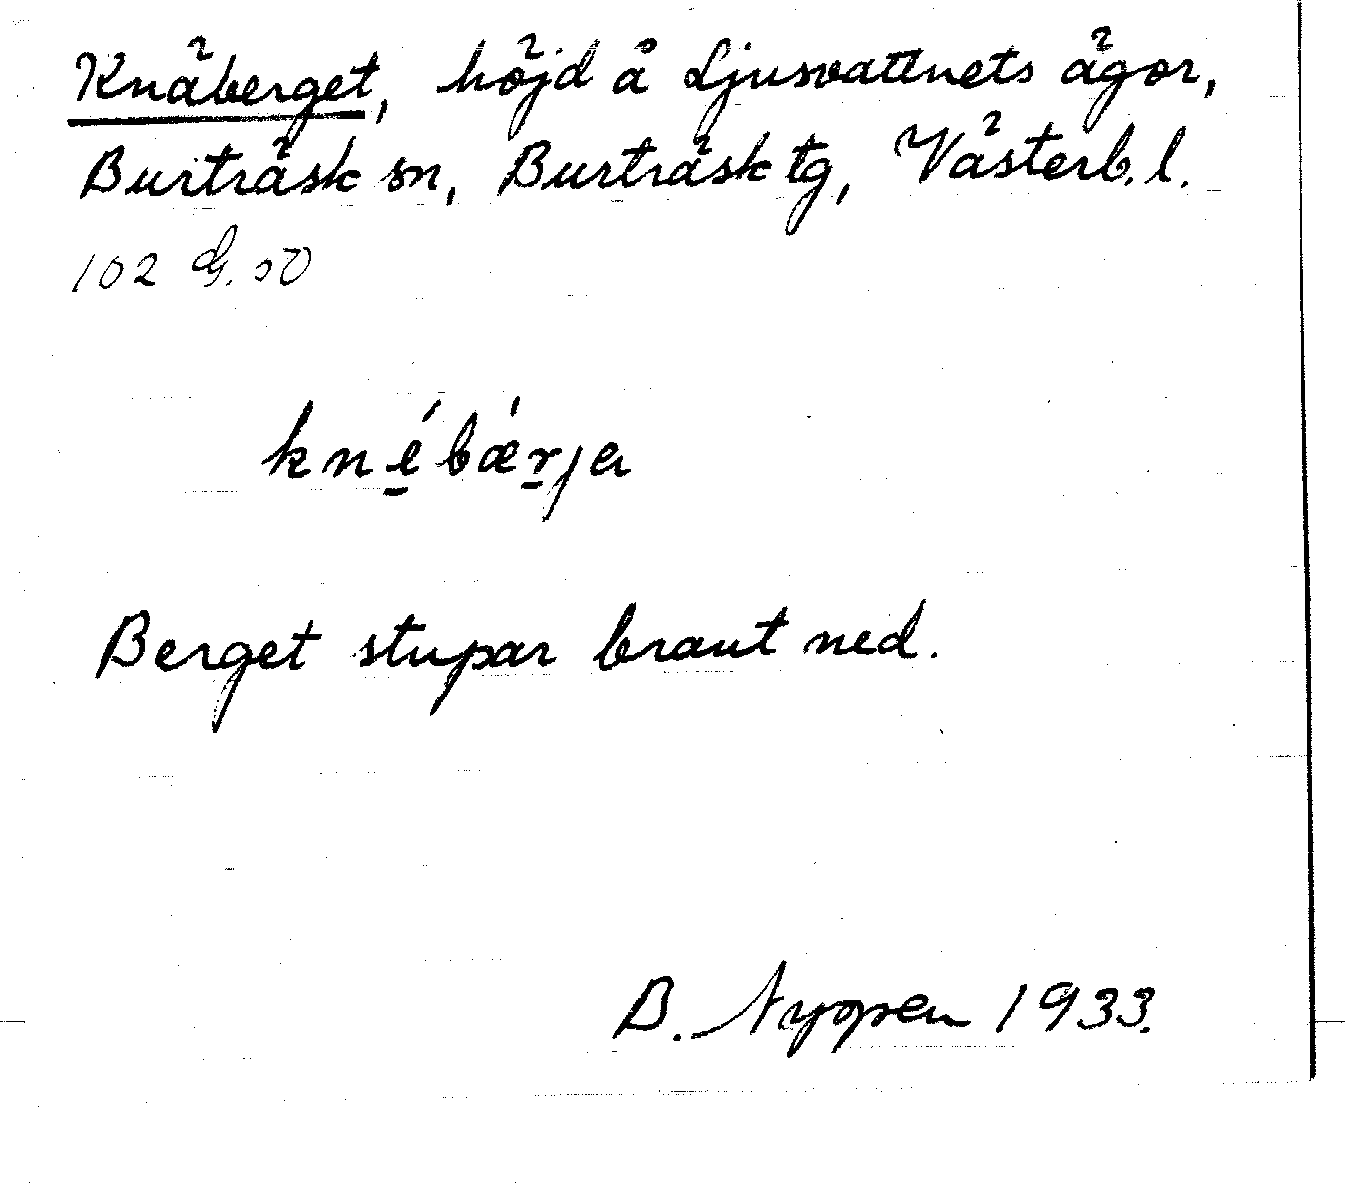 Knäberget, höjd å Ljusvattnets ägor,
Burträsk sn, Burträsk tg, Västerb. l.
102
kné̱bǽṟja
Berget stupar brant ned.
B. Nygren 1933.